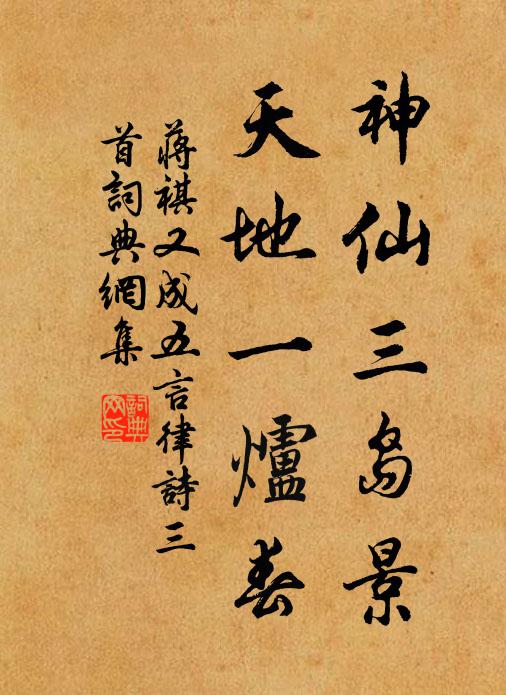 神仙三岛景
天地一爐春
蔣祺又成五言律詩三
首詞典網集
詞典
网印